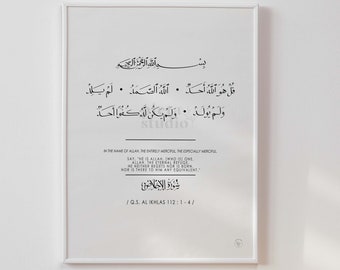 بِسْمِ ٱللَّهِ ٱلرَّحْمَٰنِ ٱلرَّحِيمِ
قُلْ هُوَ ٱللَّهُ أَحَدٌ • ٱللَّهُ ٱلصَّمَدُ • لَمْ يَلِدْ
وَلَمْ يُولَدْ • وَلَمْ يَكُن لَّهُۥ كُفُوًا أَحَدٌۢ
studio
IN THE NAME OF ALLAH, THE ENTIRELY MERCIFUL, THE ESPECIALLY MERCIFUL.
SAY, "HE IS ALLAH, [WHO IS] ONE,
ALLAH, THE ETERNAL REFUGE.
HE NEITHER BEGETS NOR IS BORN,
NOR IS THERE TO HIM ANY EQUIVALENT."
سُورَةُ الإِخْلَاصِ
/ Q.S. AL IKHLAS 112 : 1 - 4 /